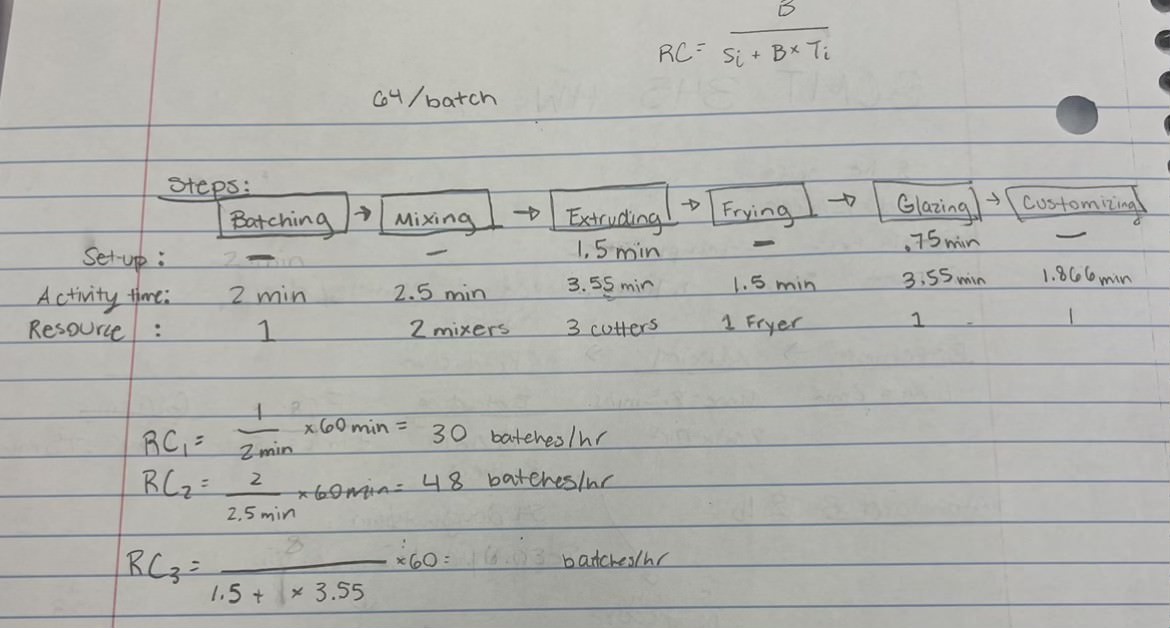 B
RC= Si + B× Ti
64/batch
Steps:
Batching → Mixing → Extruding → Frying → Glazing → Customizing
Set-up: – – 1.5 min – .75min –
Activity time: 2 min 2.5 min 3.55 min 1.5 min 3.55 min 1.866 min
Resource : 1 2 mixers 3 cutters 1 Fryer 1 1
1
RC₁= 2min ×60min = 30 batches/hr
2
RC₂ = 2.5 min ×60min= 48 batches/hr
8
RC₃ = ×60= batches/hr
1.5 + 1 × 3.55